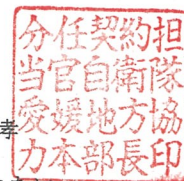 分任契約担
当官自衛隊
愛媛地方協
力本部長印
孝